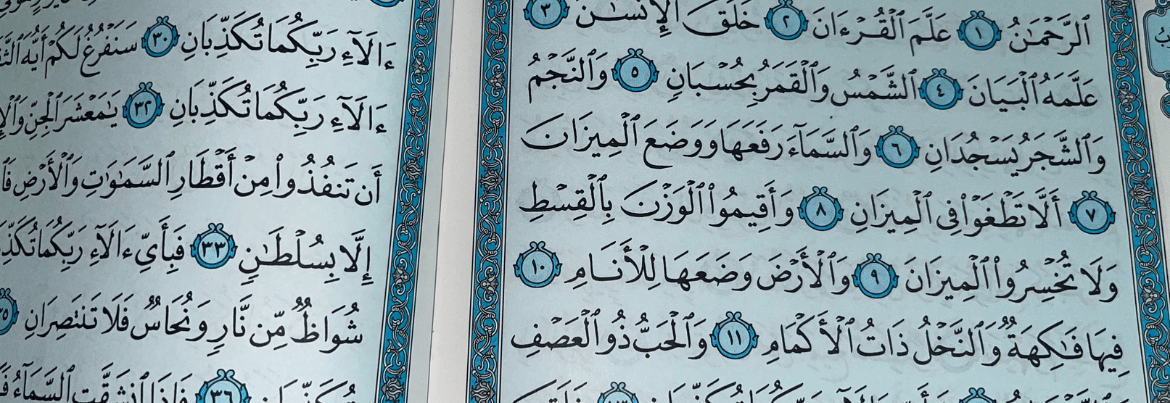 ٱلرَّحْمَـٰنُ ١ عَلَّمَ ٱلْقُرْءَانَ ٢ خَلَقَ ٱلْإِنسَـٰنَ ٣
عَلَّمَهُ ٱلْبَيَانَ ٤ ٱلشَّمْسُ وَٱلْقَمَرُ بِحُسْبَانٍ ٥ وَٱلنَّجْمُ
وَٱلشَّجَرُ يَسْجُدَانِ ٦ وَٱلسَّمَآءَ رَفَعَهَا وَوَضَعَ ٱلْمِيزَانَ
٧ أَلَّا تَطْغَوْا۟ فِى ٱلْمِيزَانِ ٨ وَأَقِيمُوا۟ ٱلْوَزْنَ بِٱلْقِسْطِ
وَلَا تُخْسِرُوا۟ ٱلْمِيزَانَ ٩ وَٱلْأَرْضَ وَضَعَهَا لِلْأَنَامِ ١٠
فِيهَا فَـٰكِهَةٌ وَٱلنَّخْلُ ذَاتُ ٱلْأَكْمَامِ ١١ وَٱلْحَبُّ ذُو ٱلْعَصْفِ
ءَالَآءِ رَبِّكُمَا تُكَذِّبَانِ ٣٠ سَنَفْرُغُ لَكُمْ أَيُّهَ
ءَالَآءِ رَبِّكُمَا تُكَذِّبَانِ ٣٢ يَـٰمَعْشَرَ ٱلْجِنِّ
أَن تَنفُذُوا۟ مِنْ أَقْطَارِ ٱلسَّمَـٰوَٰتِ وَٱلْأَرْضِ
إِلَّا بِسُلْطَـٰنٍ ٣٣ فَبِأَىِّ ءَالَآءِ رَبِّكُمَا
شُوَاظٌ مِّن نَّارٍ وَنُحَاسٌ فَلَا تَنتَصِرَانِ ٣٥
٣٦ فَإِذَا ٱنشَقَّتِ ٱلسَّمَآءُ